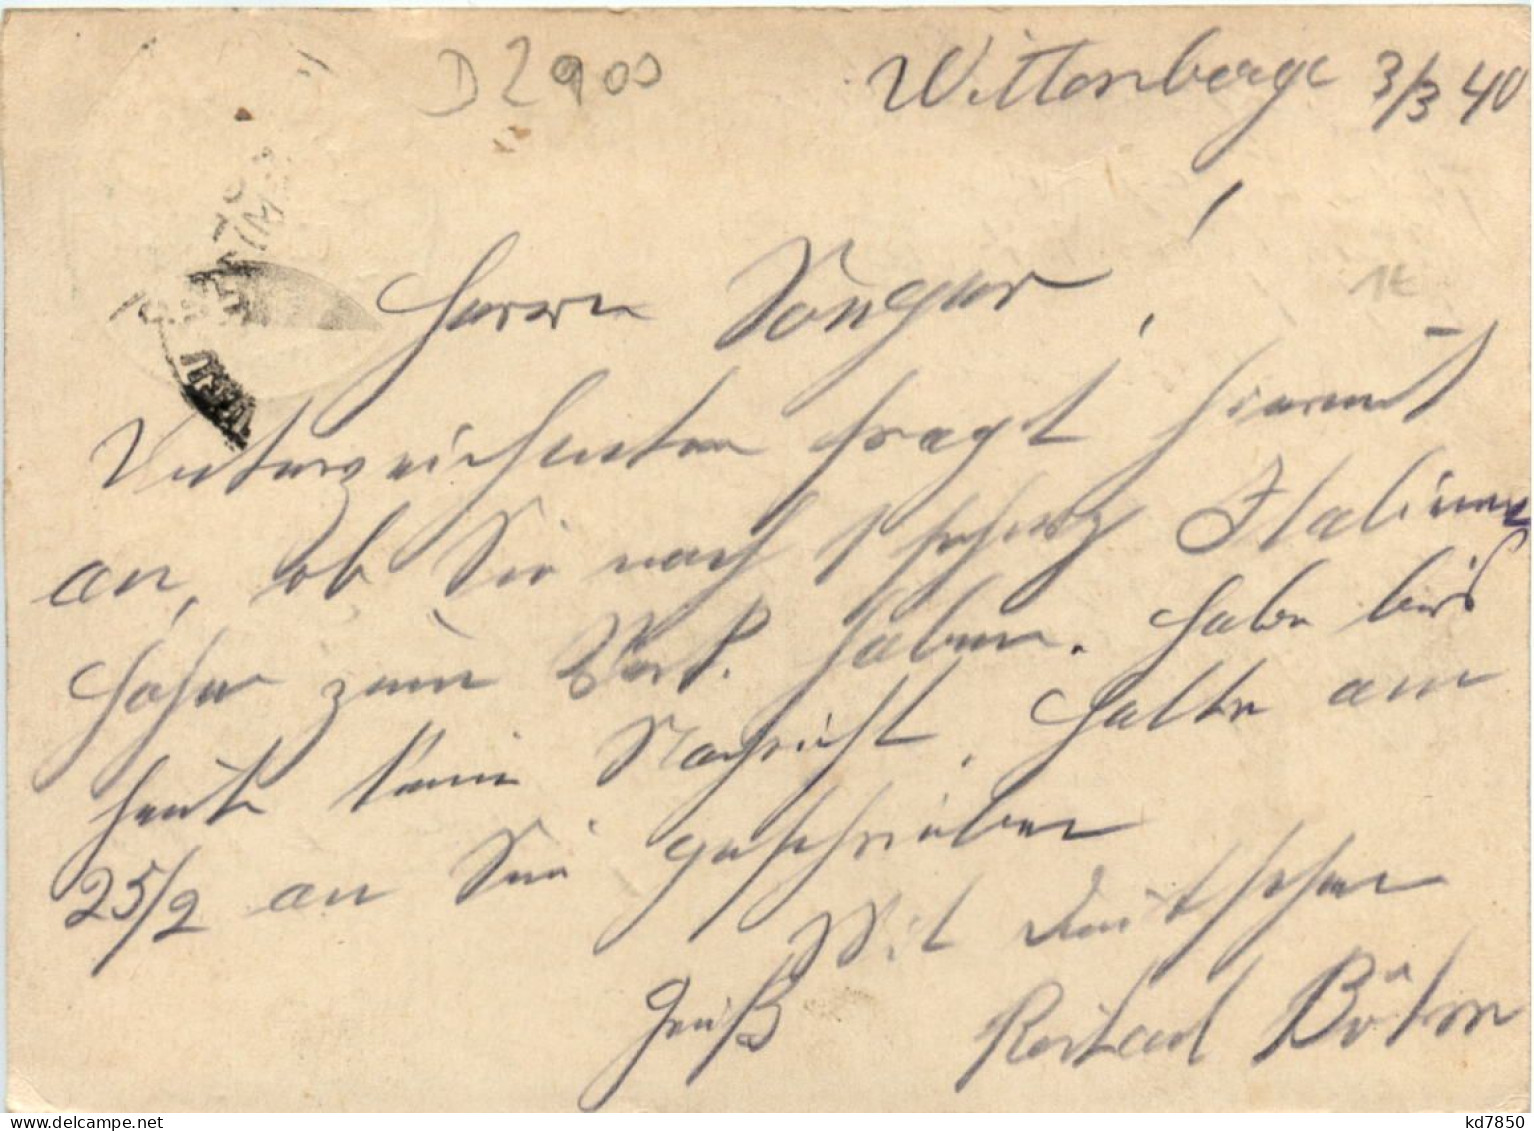 D 2900
Wittenberge 3/3 40
1€
Herrn Sänger!
Unterzeichneter fragt hiermit
an, ob Sie noch 1 schwarz Italiener
Hahn zum Verk. haben. Habe bis
heute kein Nachricht. Hatte am
25/2 an Sie geschrieben
Mit deutschen
Gruß Richard Böhm
www.delcampe.net
kd7850